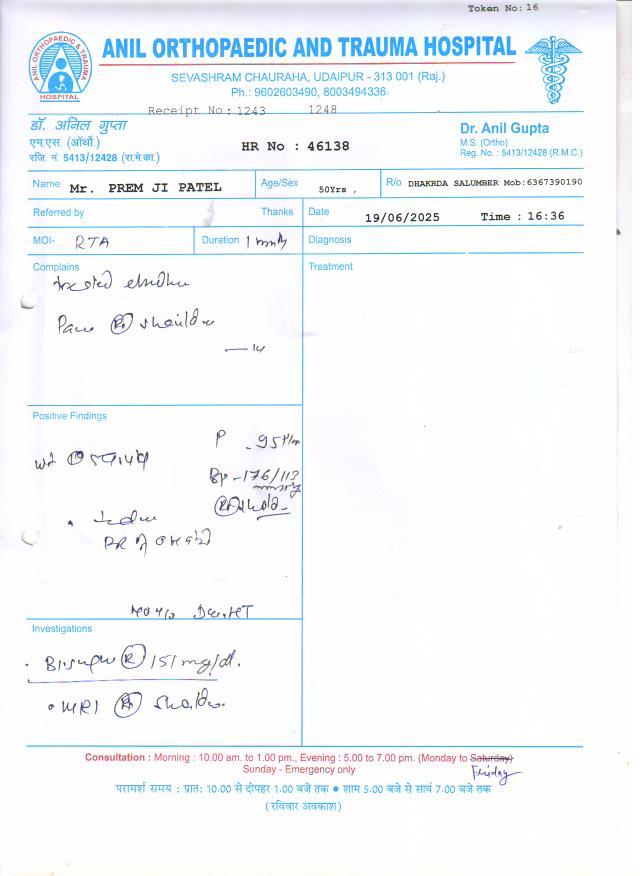 Token No: 16
ANIL ORTHOPAEDIC & TRAUMA
HOSPITAL
ANIL ORTHOPAEDIC AND TRAUMA HOSPITAL
SEVASHRAM CHAURAHA, UDAIPUR - 313 001 (Raj.)
Ph.: 9602603490, 8003494336
Receipt No: 1243 1248
डॉ. अनिल गुप्ता
एम.एस. (ऑर्थो.)
रजि. नं. 5413/12428 (रा.मे.का.)
HR No : 46138
Dr. Anil Gupta
M.S. (Ortho)
Reg. No. : 5413/12428 (R.M.C.)
Name Mr. PREM JI PATEL Age/Sex 50Yrs , R/o DHAKRDA SALUMBER Mob:6367390190
Referred by Thanks Date 19/06/2025 Time : 16:36
MOI- RTA Duration 1 Diagnosis
Complains Treatment
Pain (R) shoulder
Positive Findings
P - 95
BP - 176/113
mmHg
Investigations
(R) 151 mg/dl.
• MRI (R) Shoulder
Consultation : Morning : 10.00 am. to 1.00 pm., Evening : 5.00 to 7.00 pm. (Monday to Saturday)
Friday
Sunday - Emergency only
परामर्श समय : प्रात: 10.00 से दोपहर 1.00 बजे तक ● शाम 5.00 बजे से सायं 7.00 बजे तक
(रविवार अवकाश)